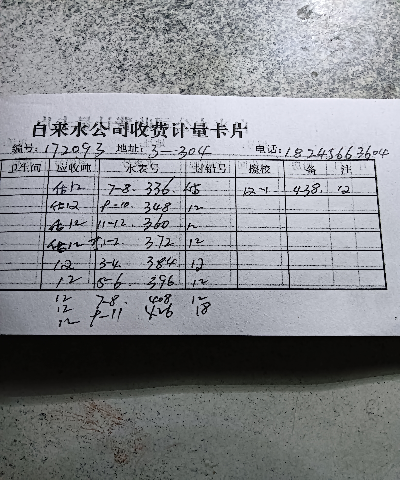 自来水公司收费计量卡片
编号: 172093 地址: 3-304 电话: 18245663604
卫生间 应收吨 水表号 铅封号 换校 备 注
估12 7-8 336 12-1 438 12
估12 9-10 348 12
估12 11-12 360 12
估12 1-2 372 12
12 3-4 384 12
12 5-6 396 12
12 7-8 408 12
12 9-11 426 18
12